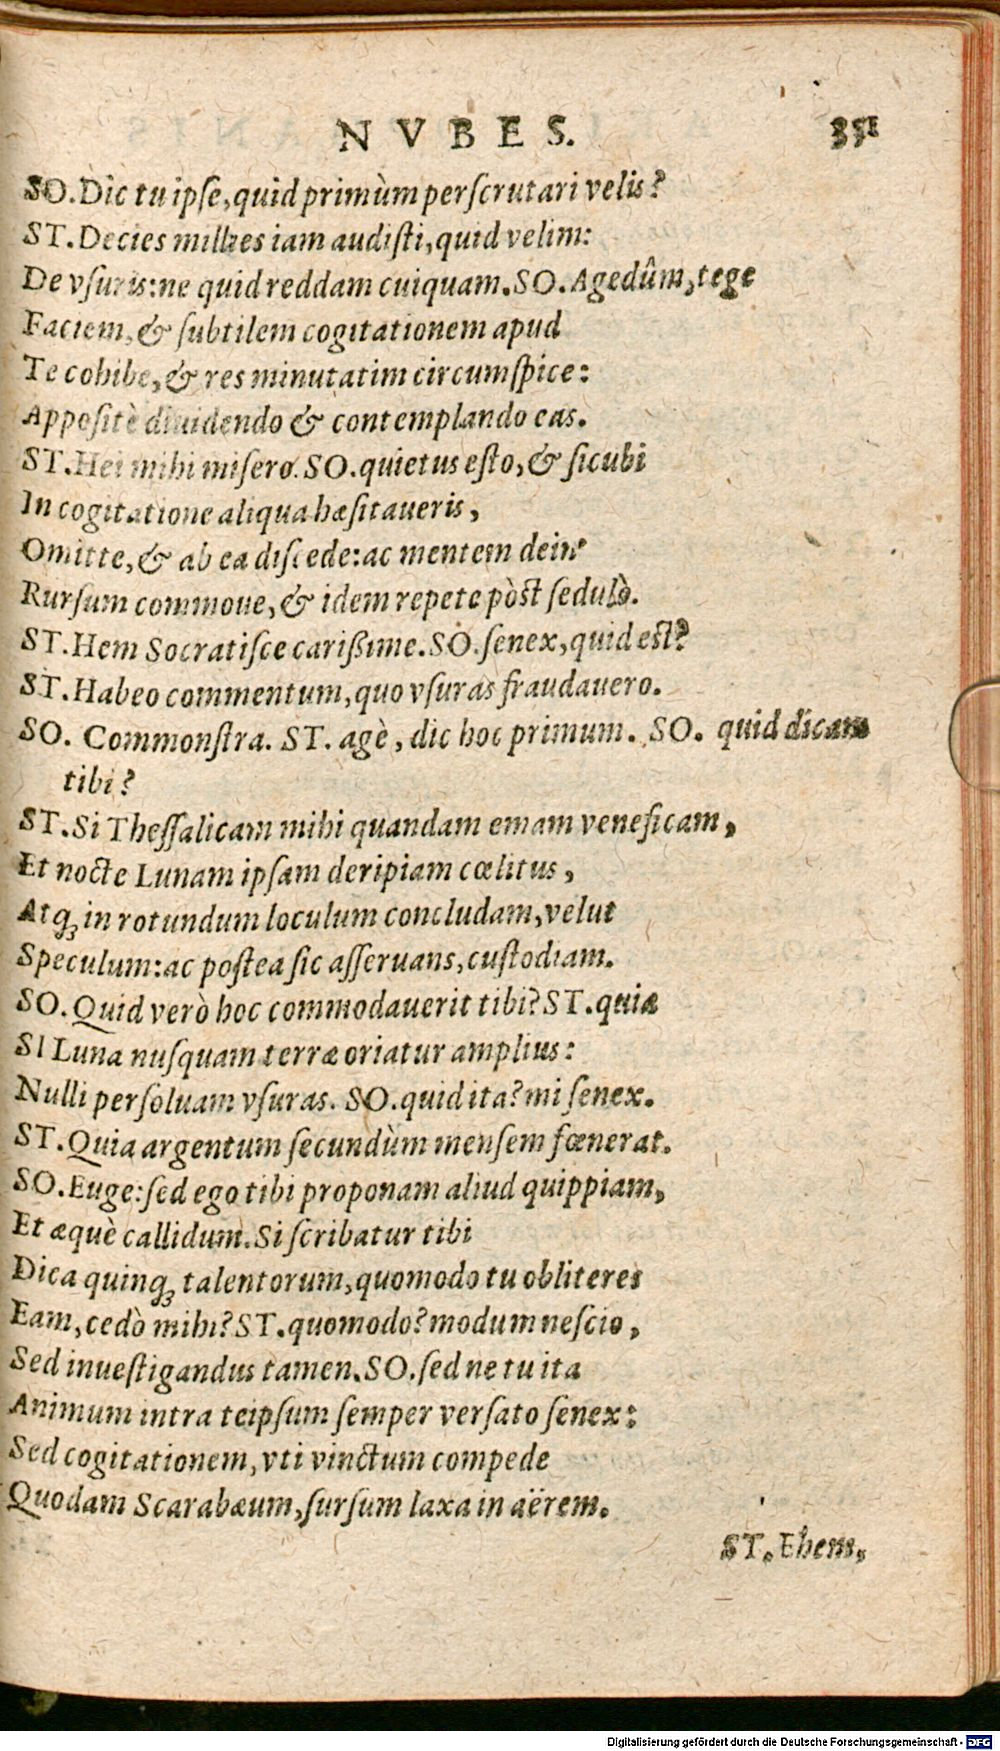 NVBES. 351
SO. Dic tu ipſe, quid primùm perſcrutari velis?
ST. Decies millies iam audiſti, quid velim:
De vſuris: ne quid reddam cuiquam. SO. Agedûm, tege
Faciem, & ſubtilem cogitationem apud
Te cohibe, & res minutatim circumſpice:
Appoſitè diuidendo & contemplando eas.
ST. Hei mihi miſero. SO. quietus eſto, & ſicubi
In cogitatione aliqua hæſitaueris,
Omitte, & ab ea diſcede: ac mentem dein'
Rurſum commoue, & idem repete pòſt ſedulò.
ST. Hem Socratiſce carißime. SO. ſenex, quid eſt?
ST. Habeo commentum, quo vſuras fraudauero.
SO. Commonſtra. ST. agè, dic hoc primum. SO. quid dicam
tibi?
ST. Si Theſſalicam mihi quandam emam veneficam,
Et nocte Lunam ipſam deripiam cœlitus,
Atq; in rotundum loculum concludam, velut
Speculum: ac poſtea ſic aſſeruans, cuſtodiam.
SO. Quid verò hoc commodauerit tibi? ST. quia
Si Luna nuſquam terræ oriatur amplius:
Nulli perſoluam vſuras. SO. quid ita? mi ſenex.
ST. Quia argentum ſecundùm menſem fœnerat.
SO. Euge: ſed ego tibi proponam aliud quippiam,
Et æquè callidum. Si ſcribatur tibi
Dica quinq; talentorum, quomodo tu obliteres
Eam, cedò mihi? ST. quomodo? modum neſcio,
Sed inueſtigandus tamen. SO. ſed ne tu ita
Animum intra teipſum ſemper verſato ſenex:
Sed cogitationem, vti vinctum compede
Quodam Scarabæum, ſurſum laxa in aërem.
ST. Ehem,
Digitalisierung gefördert durch die Deutsche Forschungsgemeinschaft - DFG